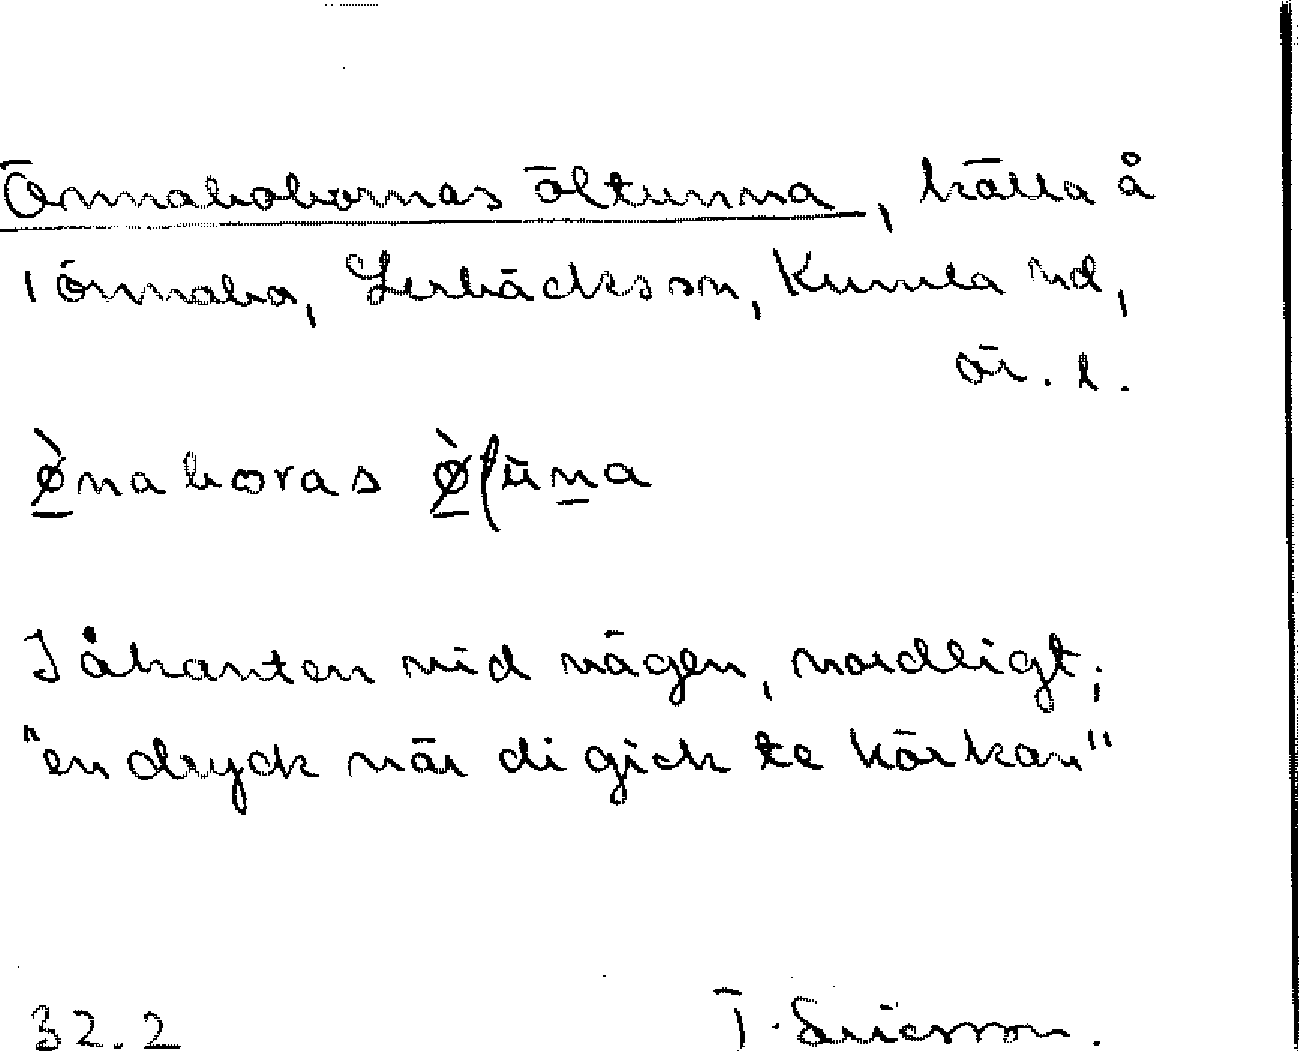 Önnabobornas öltunna, källa å
1 önnabo, Lerbäckssn, Kumla hd,
ör. l.
ø̲̀naboras ø̲̀ʃün̲a
I åkanten vid vägen, nordligt;
"en dryck när di gick te körkan"
32.2 T. Ericsson.